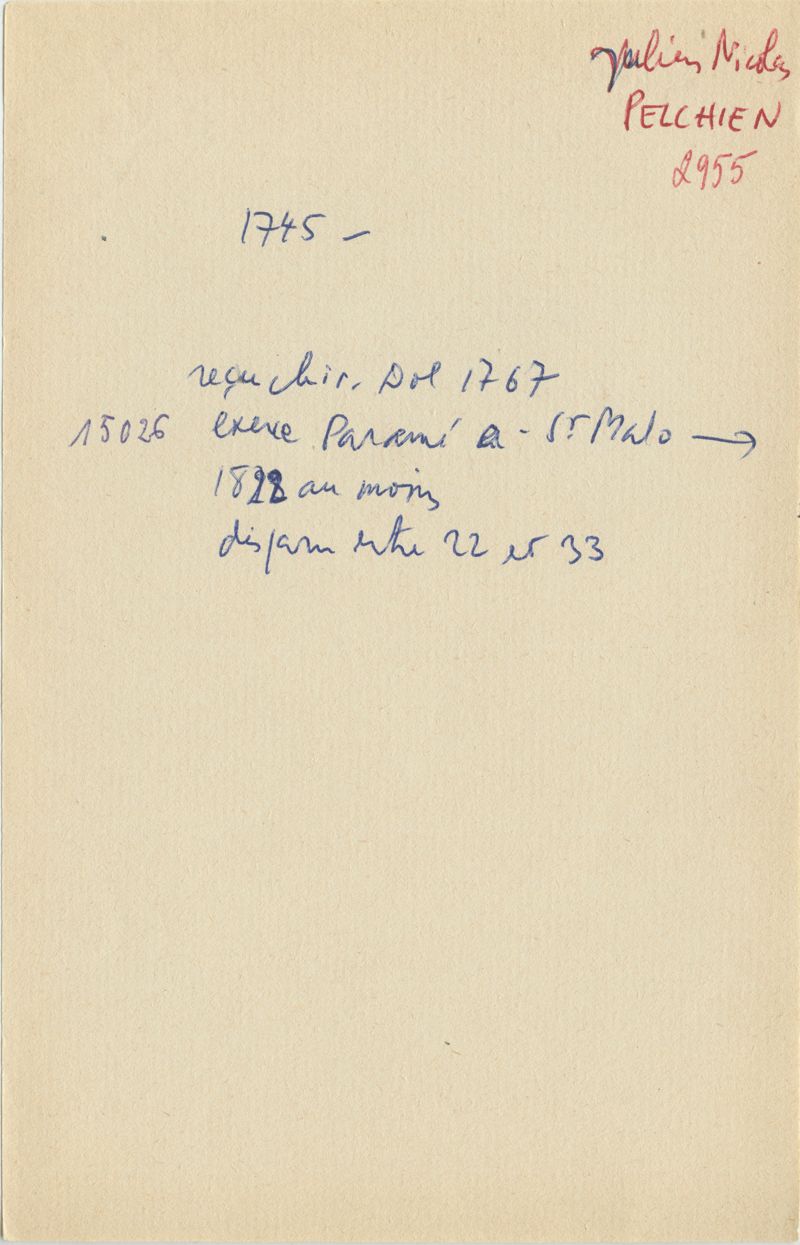 Julien Nicolas
PELCHIEN
2955
1745 –
reçu chir. Dol 1767
15026 exerce Paramé - St Malo →
1822 au moins
disparu entre 22 et 33